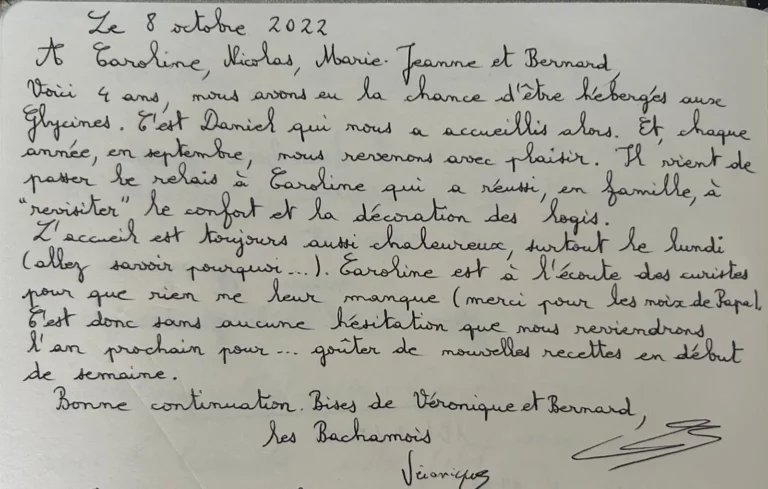 Le 8 octobre 2022
A Caroline, Nicolas, Marie-Jeanne et Bernard,
Voici 4 ans, nous avons eu la chance d'être hébergés aux
Glycines. C'est Daniel qui nous a accueillis alors. Et, chaque
année, en septembre, nous revenons avec plaisir. Il vient de
passer le relais à Caroline qui a réussi, en famille, à
"revisiter" le confort et la décoration des logis.
L'accueil est toujours aussi chaleureux, surtout le lundi
(allez savoir pourquoi...). Caroline est à l'écoute des curistes
pour que rien ne leur manque (merci pour les noix de Papa).
C'est donc sans aucune hésitation que nous reviendrons
l'an prochain pour... goûter de nouvelles recettes en début
de semaine.
Bonne continuation. Bises de Véronique et Bernard,
les Bachamois
Véronique